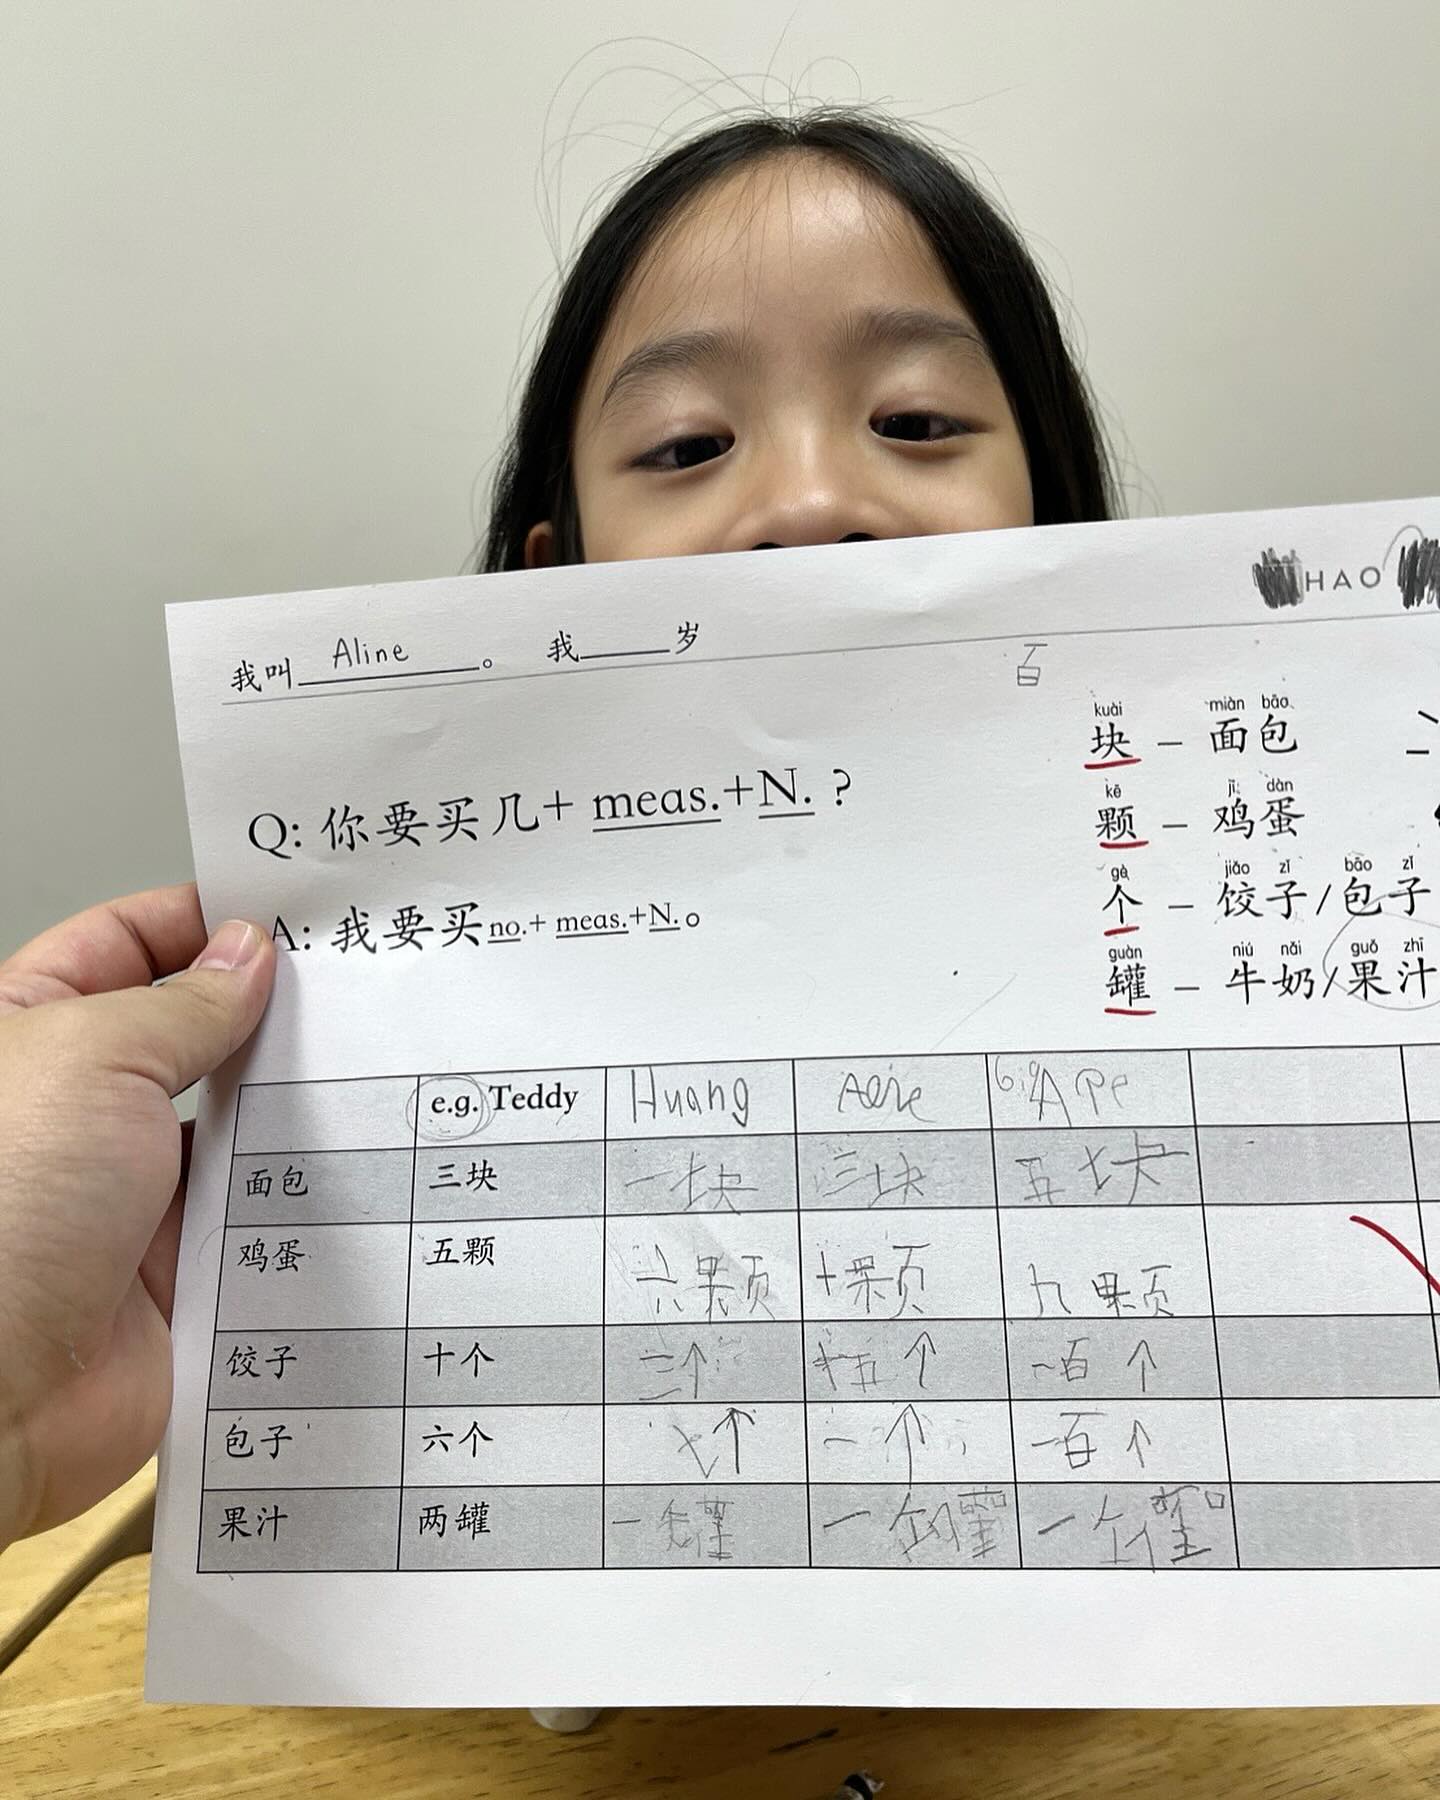 HAO
我叫 Aline 。 我____岁
百
Q: 你要买几+ meas.+N. ?
A: 我要买no.+ meas.+N.。
kuài miàn bāo
块 – 面包
kē jī dàn
颗 – 鸡蛋
gè jiǎo zǐ bāo zǐ
个 – 饺子/包子
guàn niú nǎi guǒ zhī
罐 – 牛奶/果汁
e.g. Teddy Huang
面包 三块 一块 三块 五块
鸡蛋 五颗 六颗 十颗 九颗
饺子 十个 三个 十五个 一百个
包子 六个 七个 一个 一百个
果汁 两罐 一罐 一罐 一罐